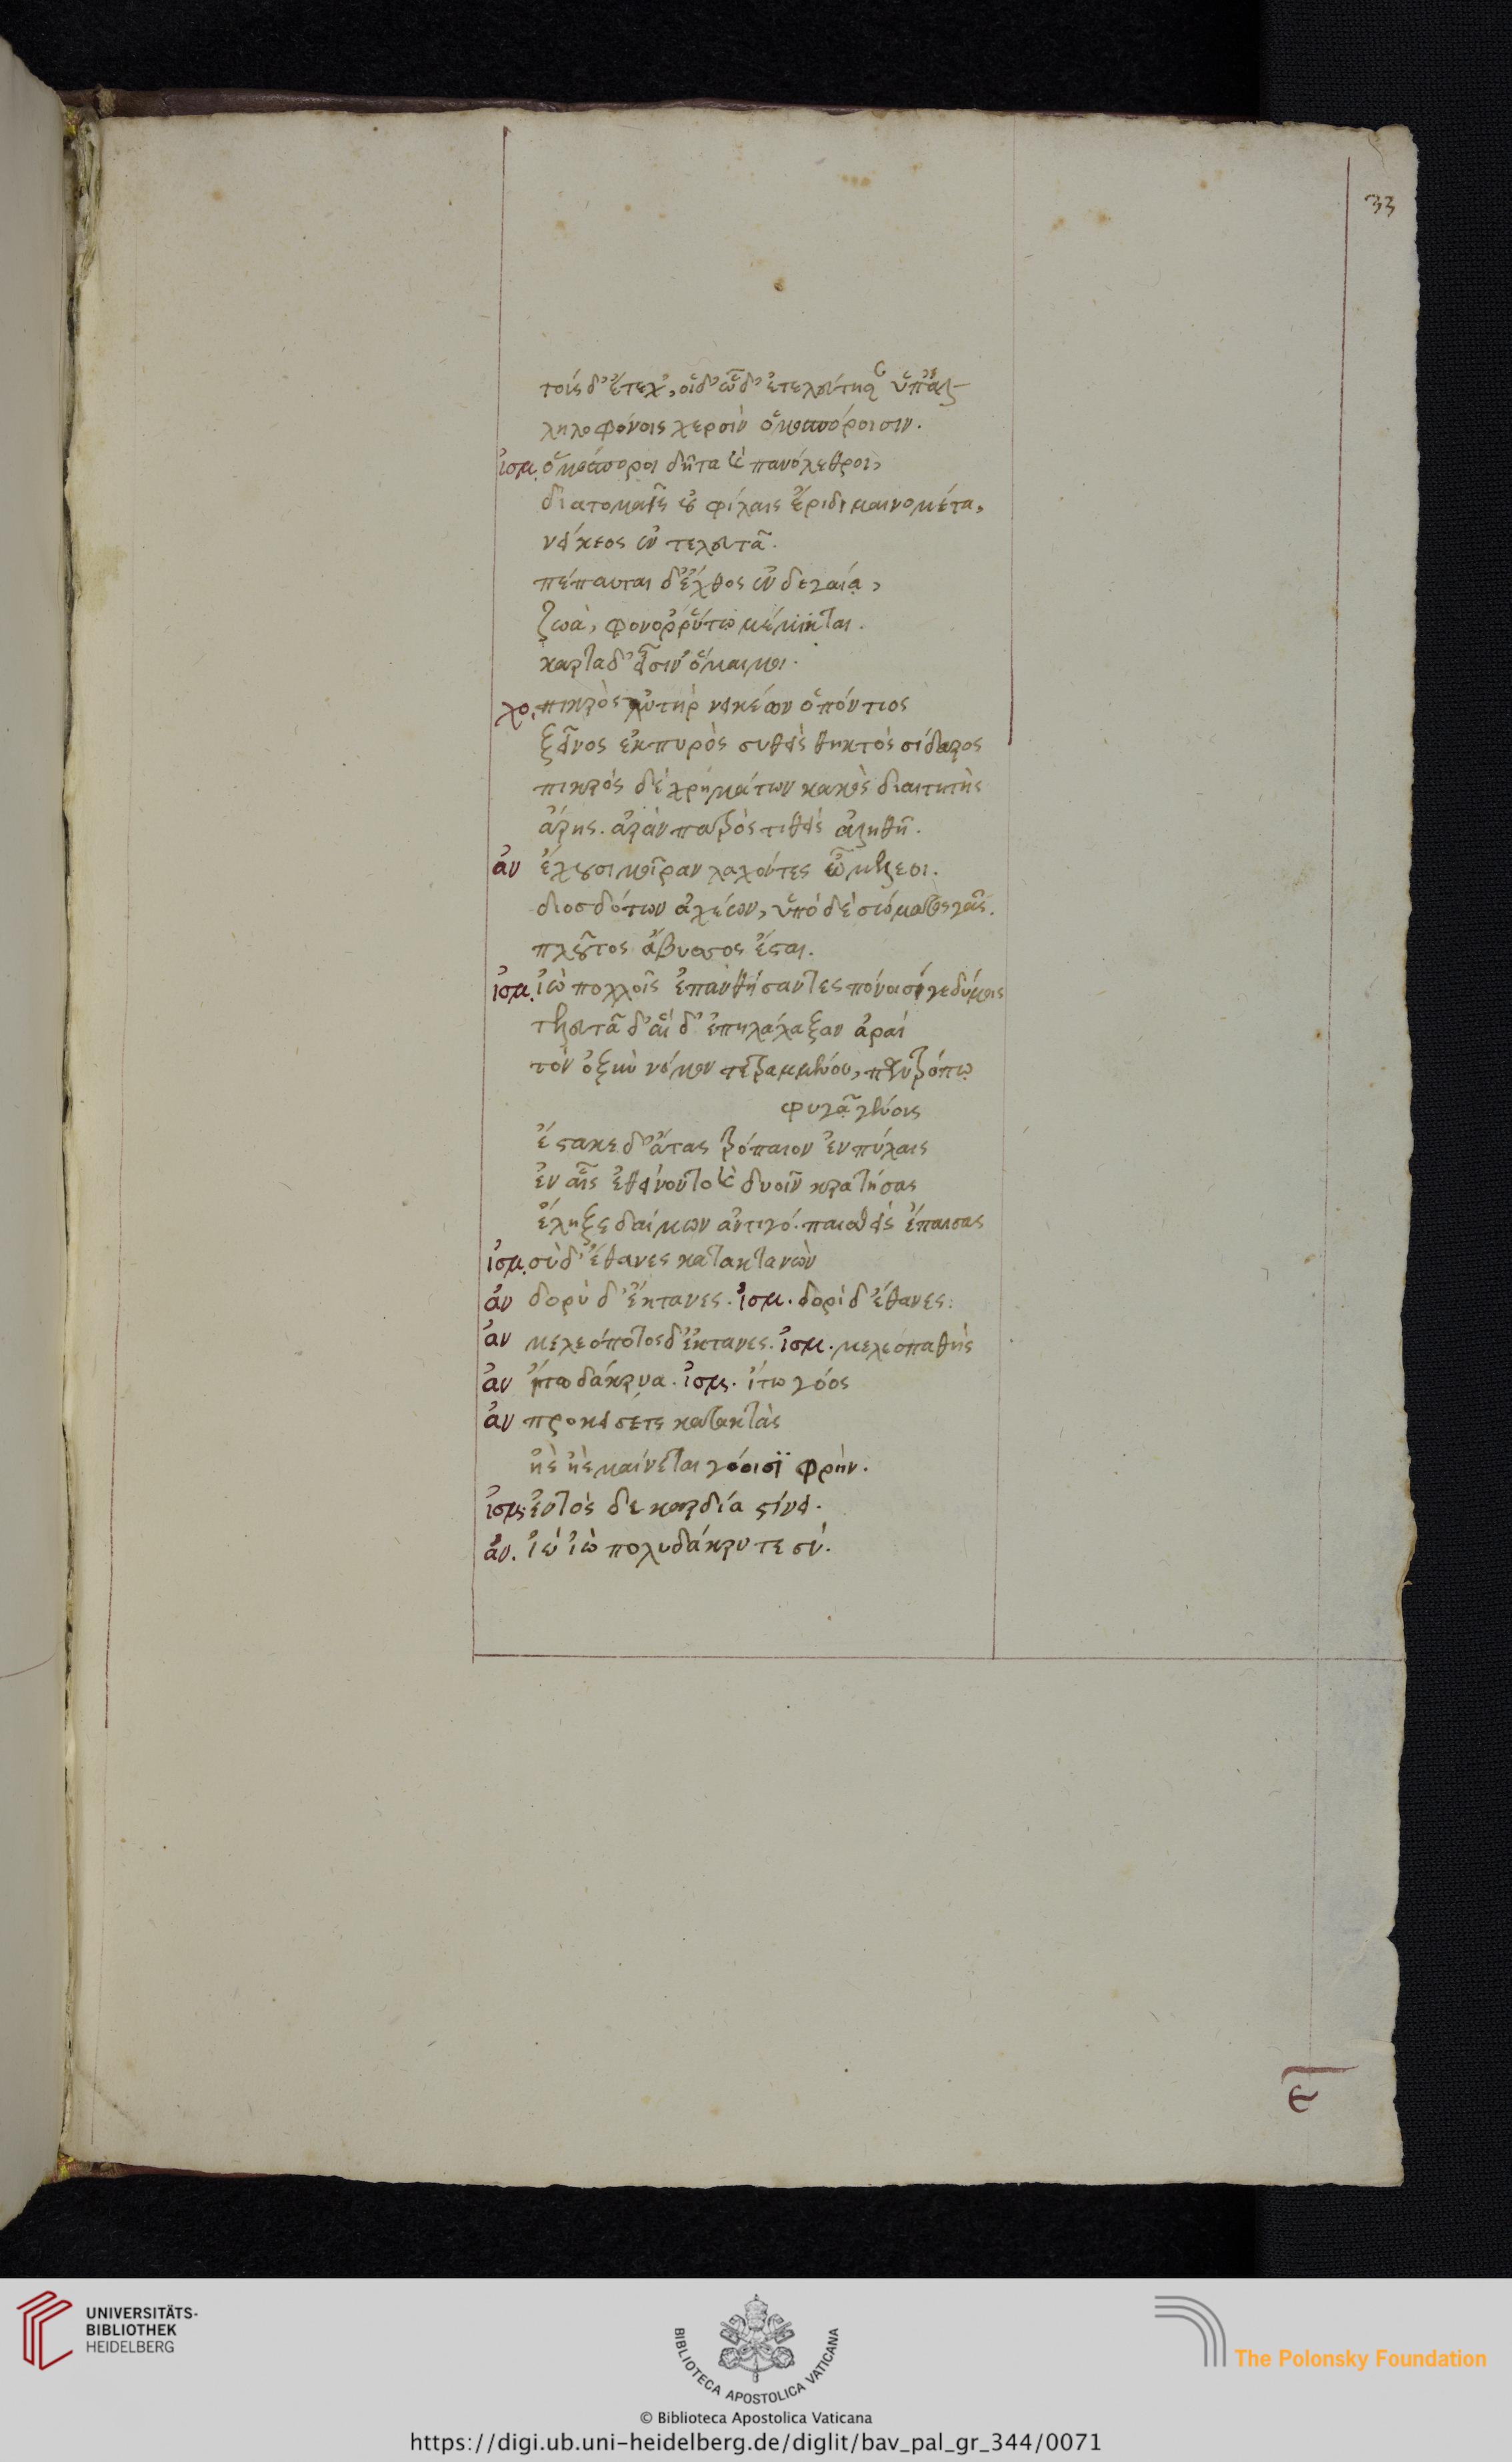 33
τοὺς δ' ἔτεχ', οἱ δ' ὧδ' ἐτελεύτησ ὑπ' ἀλ
ληλοφόνοις χερσὶν ὁμοσπόροισιν.
ἰσμ. ὁμόσποροι δῆτα καὶ πανόλεθροι,
διατομαῖς οὐ φίλαις ἔριδι μαινομένα,
νείκεος ἐν τελευτᾶ.
πέπαυται δ' ἔχθος ἐν δὲ γαία,
ζωὰ, φονορρύτω μέμικται.
κάρτα δ' εἰσὶν ὅμαιμοι.
χο. πικρὸς λυτὴρ νεικέων ὁ πόντιος
ξεῖνος ἐκ πυρὸς συθεὶς θηκτὸς σίδαρος
πικρός δὲ χρημάτων κακὸς διαιτητὴς
ἄρης. ἀρὰν πατρὸς τιθεὶς ἀληθῆ.
ἀν ἔχουσι μοῖραν λαχόντες ὦ μέλεοι.
διοσδότων ἀχέων, ὑπὸ δὲ σώματος γᾶς.
πλοῦτος ἄβυσσος ἔσται.
ἰσμ. ἰὼ πολλοῖς ἐπανθήσαντες πόνοισί γε δόμοις
τελευτᾶ δ' αἵ δ' ἐπηλάλαξαν ἀραὶ
τὸν ὀξὺν νόμον τετραμμένου, παντρόπω
φυγᾶ γένους
ἕστακε δ' ἄτας τρόπαιον ἐν πύλαις
ἐν αἷς ἐθείνοντο καὶ δυοῖν κρατήσας
ἔληξε δαίμων ἀντιγό. παισθεὶς ἔπαισας
ἰσμ. σὺ δ' ἔθανες κατακτανών
ἀν δορὺ δ' ἔκτανες. ἰσμ. δορὶ δ' ἔθανες:
ἀν μελεόπονος δ' ἔκτανες. ἰσμ. μελεοπαθὴς
ἀν ἴτω δάκρυα. ἰσμ. ἴτω γόος
ἀν προκείσεται κατακτὰς
ἠὲ ἠὲ μαίνεται γόοισϊ φρήν.
ἰσμ. ἐντὸς δὲ καρδία στένει.
ἀν. ἰὼ ἰὼ πολυδάκρυτε σύ.
ε
UNIVERSITÄTS-
BIBLIOTHEK
HEIDELBERG
BIBLIOTECA APOSTOLICA VATICANA
The Polonsky Foundation
© Biblioteca Apostolica Vaticana
https://digi.ub.uni-heidelberg.de/diglit/bav_pal_gr_344/0071